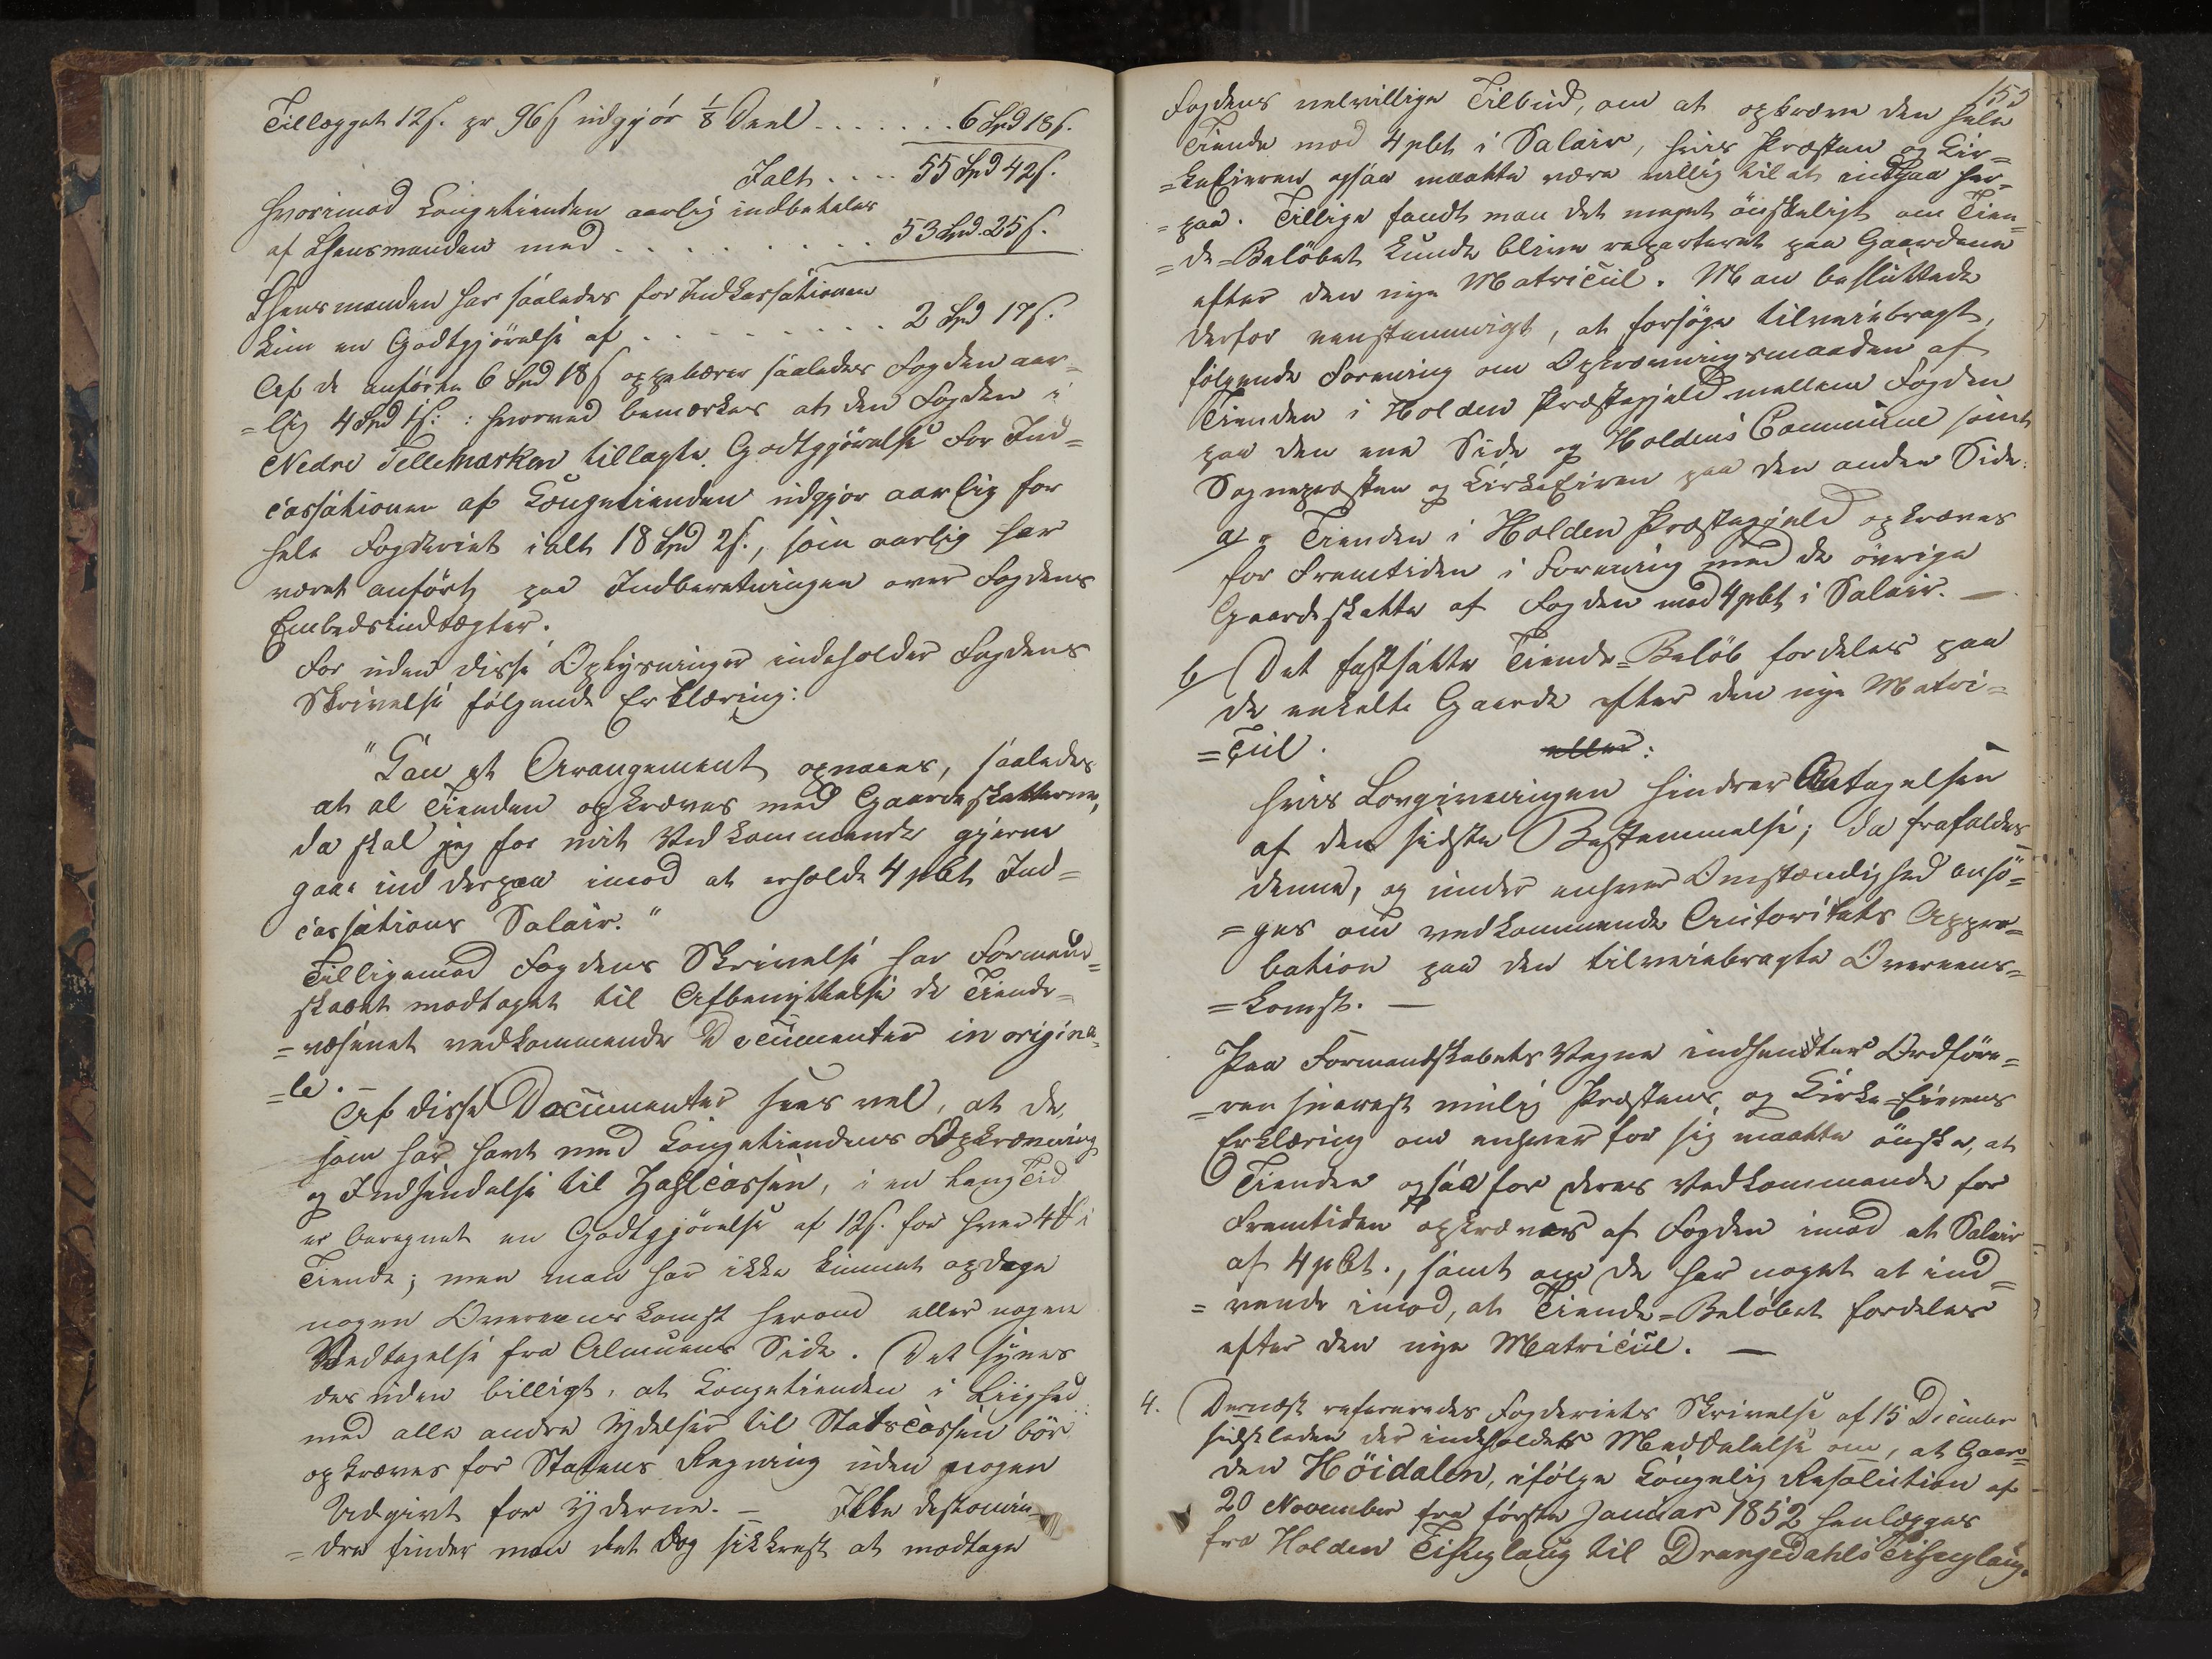 Tillægget 12ß. pr 96ß udgjör 1/8 Deel . . . . . . . 6 Spd 18ß.
Ialt . . . . 55 Spd 42ß.
hvorimod Kongetienden aarlig indbetales
af Lhensmanden med . . . . . . . . . 53 Spd. 25ß.
Lhensmanden har saaledes for Indkassationen
kun en Godtgjörelse af . . . . . . . . . 2 Spd 17ß.
Af de anförte 6 Spd 18ß oppebærer saaledes Fogden aar=
=lig 4 Spd 1ß.: hvorved bemærkes at den Fogden i
Nedre Tellemarken tillagte Godtgjörelse for Ind=
cassationen af Kongetienden udgjör aarlig for
hele Fogderiet ialt 18 Spd 2ß., som aarlig har
været anfört paa Indberetningen over Fogdens
Embedsindtægter.
For uden disse Oplysninger indeholder Fogdens
Skrivelse fölgende Erklæring:
"Kan et Arangement opnaaes, saaledes
at al Tienden opkræves med Gaardskatterne,
da skal jeg for mit Vedkommende gjerne
gaae ind derpaa imod at erholde 4 pCt Ind=
cassations Salair."
Tilligemed Fogdens Skrivelse har Formand=
skabet modtaget til Afbenyttelse de Tiende=
=væsenet vedkommende Documenter in origina=
=le. –
Af disse Documenter sees vel, at de,
som har havt med Kongetiendens Opkrævning
og Indsendelse til Zahlcassen, i en lang Tid
er beregnet en Godtgjörelse af 12ß. for hver i
Tiende; men man har ikke kunnet opdage
nogen Overeenskomst herom eller nogen
Vedtagelse fra Almuens Side. Det synes
des uden billigt, at Kongetienden i Liighed
med alle andre Ydelser til Statscassen bör
opkræves for Statens Regning uden nogen
Udgivt for Yderne. – Ikke destomin=
=dre finder man det dog sikkrest at modtage
155
Fogdens velvillige Tilbud, om at opkræve den hele
Tiende mod 4 pCt i Salair, hvis Præsten og Kir=
=keEieren ogsaa maatte være villig til at indgaa her=
=paa. Tillige fandt man det meget önskeligt om Tien=
=de=Belöbet kunde blive reparteret paa Gaardene
efter den nye Matricul. Man besluttede
derfor eenstemmigt, at forsöge tilveiebragt,
fölgende Forening om Opkrævningsmaaden af
Tienden i Holden Præstegjeld mellem Fogden
paa den ene Side og Holdens Commune samt
Sognepræsten og KirkeEieren paa den anden Side:
a/ Tienden i Holden Præstegjeld opkræves
for Fremtiden i Forening med de övrige
Gaardskatte af Fogden mod 4 pCt i Salair. —
b/ Det fastsatte Tiende=Belöb fordeles paa
de enkelte Gaarde efter den nye Matri=
=cul. eller:
hvis Lovgivningen hindrer Antagelsen
af den sidste Bestemmelse; da frafaldes
denne, og under enhver Omstændighed ansö=
=ges om vedkommende Autoritets Appro=
bation paa den tilveiebragte Overeens=
=komst. —
Paa Formandskabets Vegne indhenter Ordföre=
=ren snarest mulig Præstens og Kirke=Eierens
Erklæring om enhver for sig maatte önske, at
Tienden ogsaa for deres Vedkommende for
Fremtiden opkræves af Fogden imod at Salair
af 4 pCt., samt om de har noget at ind=
=vende imod, at Tiende=Belöbet fordeles
efter den nye Matricul. —
4. Dernæst refereredes Fogderiets Skrivelse af 15 December
sidstleden der indeholdt Meddelelse om, at Gaar=
den Höidalen, ifölge Kongelig Resolution af
20 November fra förste Januar 1852 henlægges
fra Holden Tinglaug til Drangedahls Tinglaug.